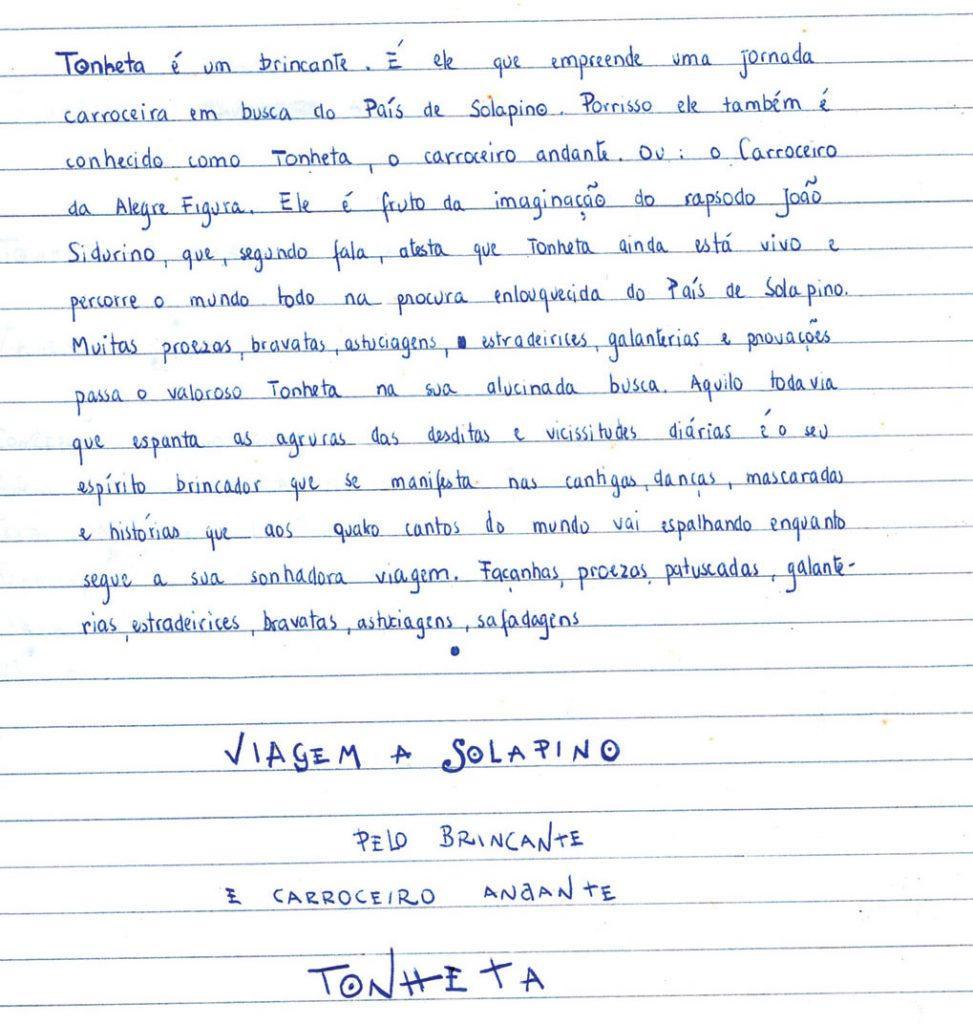 Tonheta é um brincante. É ele que empreende uma jornada
carroceira em busca do País de Solapino. Porrisso ele também é
conhecido como Tonheta, o carroceiro andante. Ou: o Carroceiro
da Alegre Figura. Ele é fruto da imaginação do rapsodo João
Sidurino, que, segundo fala, atesta que Tonheta ainda está vivo e
percorre o mundo todo na procura enlouquecida do País de Solapino.
Muitas proezas, bravatas, astuciagens, estradeirices, galanterias e provações
passa o valoroso Tonheta na sua alucinada busca. Aquilo todavia
que espanta as agruras das desditas e vicissitudes diárias é o seu
espírito brincador que se manifesta nas cantigas, danças, mascaradas
e histórias que aos quatro cantos do mundo vai espalhando enquanto
segue a sua sonhadora viagem. Façanhas, proezas, patuscadas, galante-
rias, estradeirices, bravatas, astuciagens, safadagens
VIAGEM A SOLAPINO
PELO BRINCANTE
E CARROCEIRO ANDANTE
TONHETA